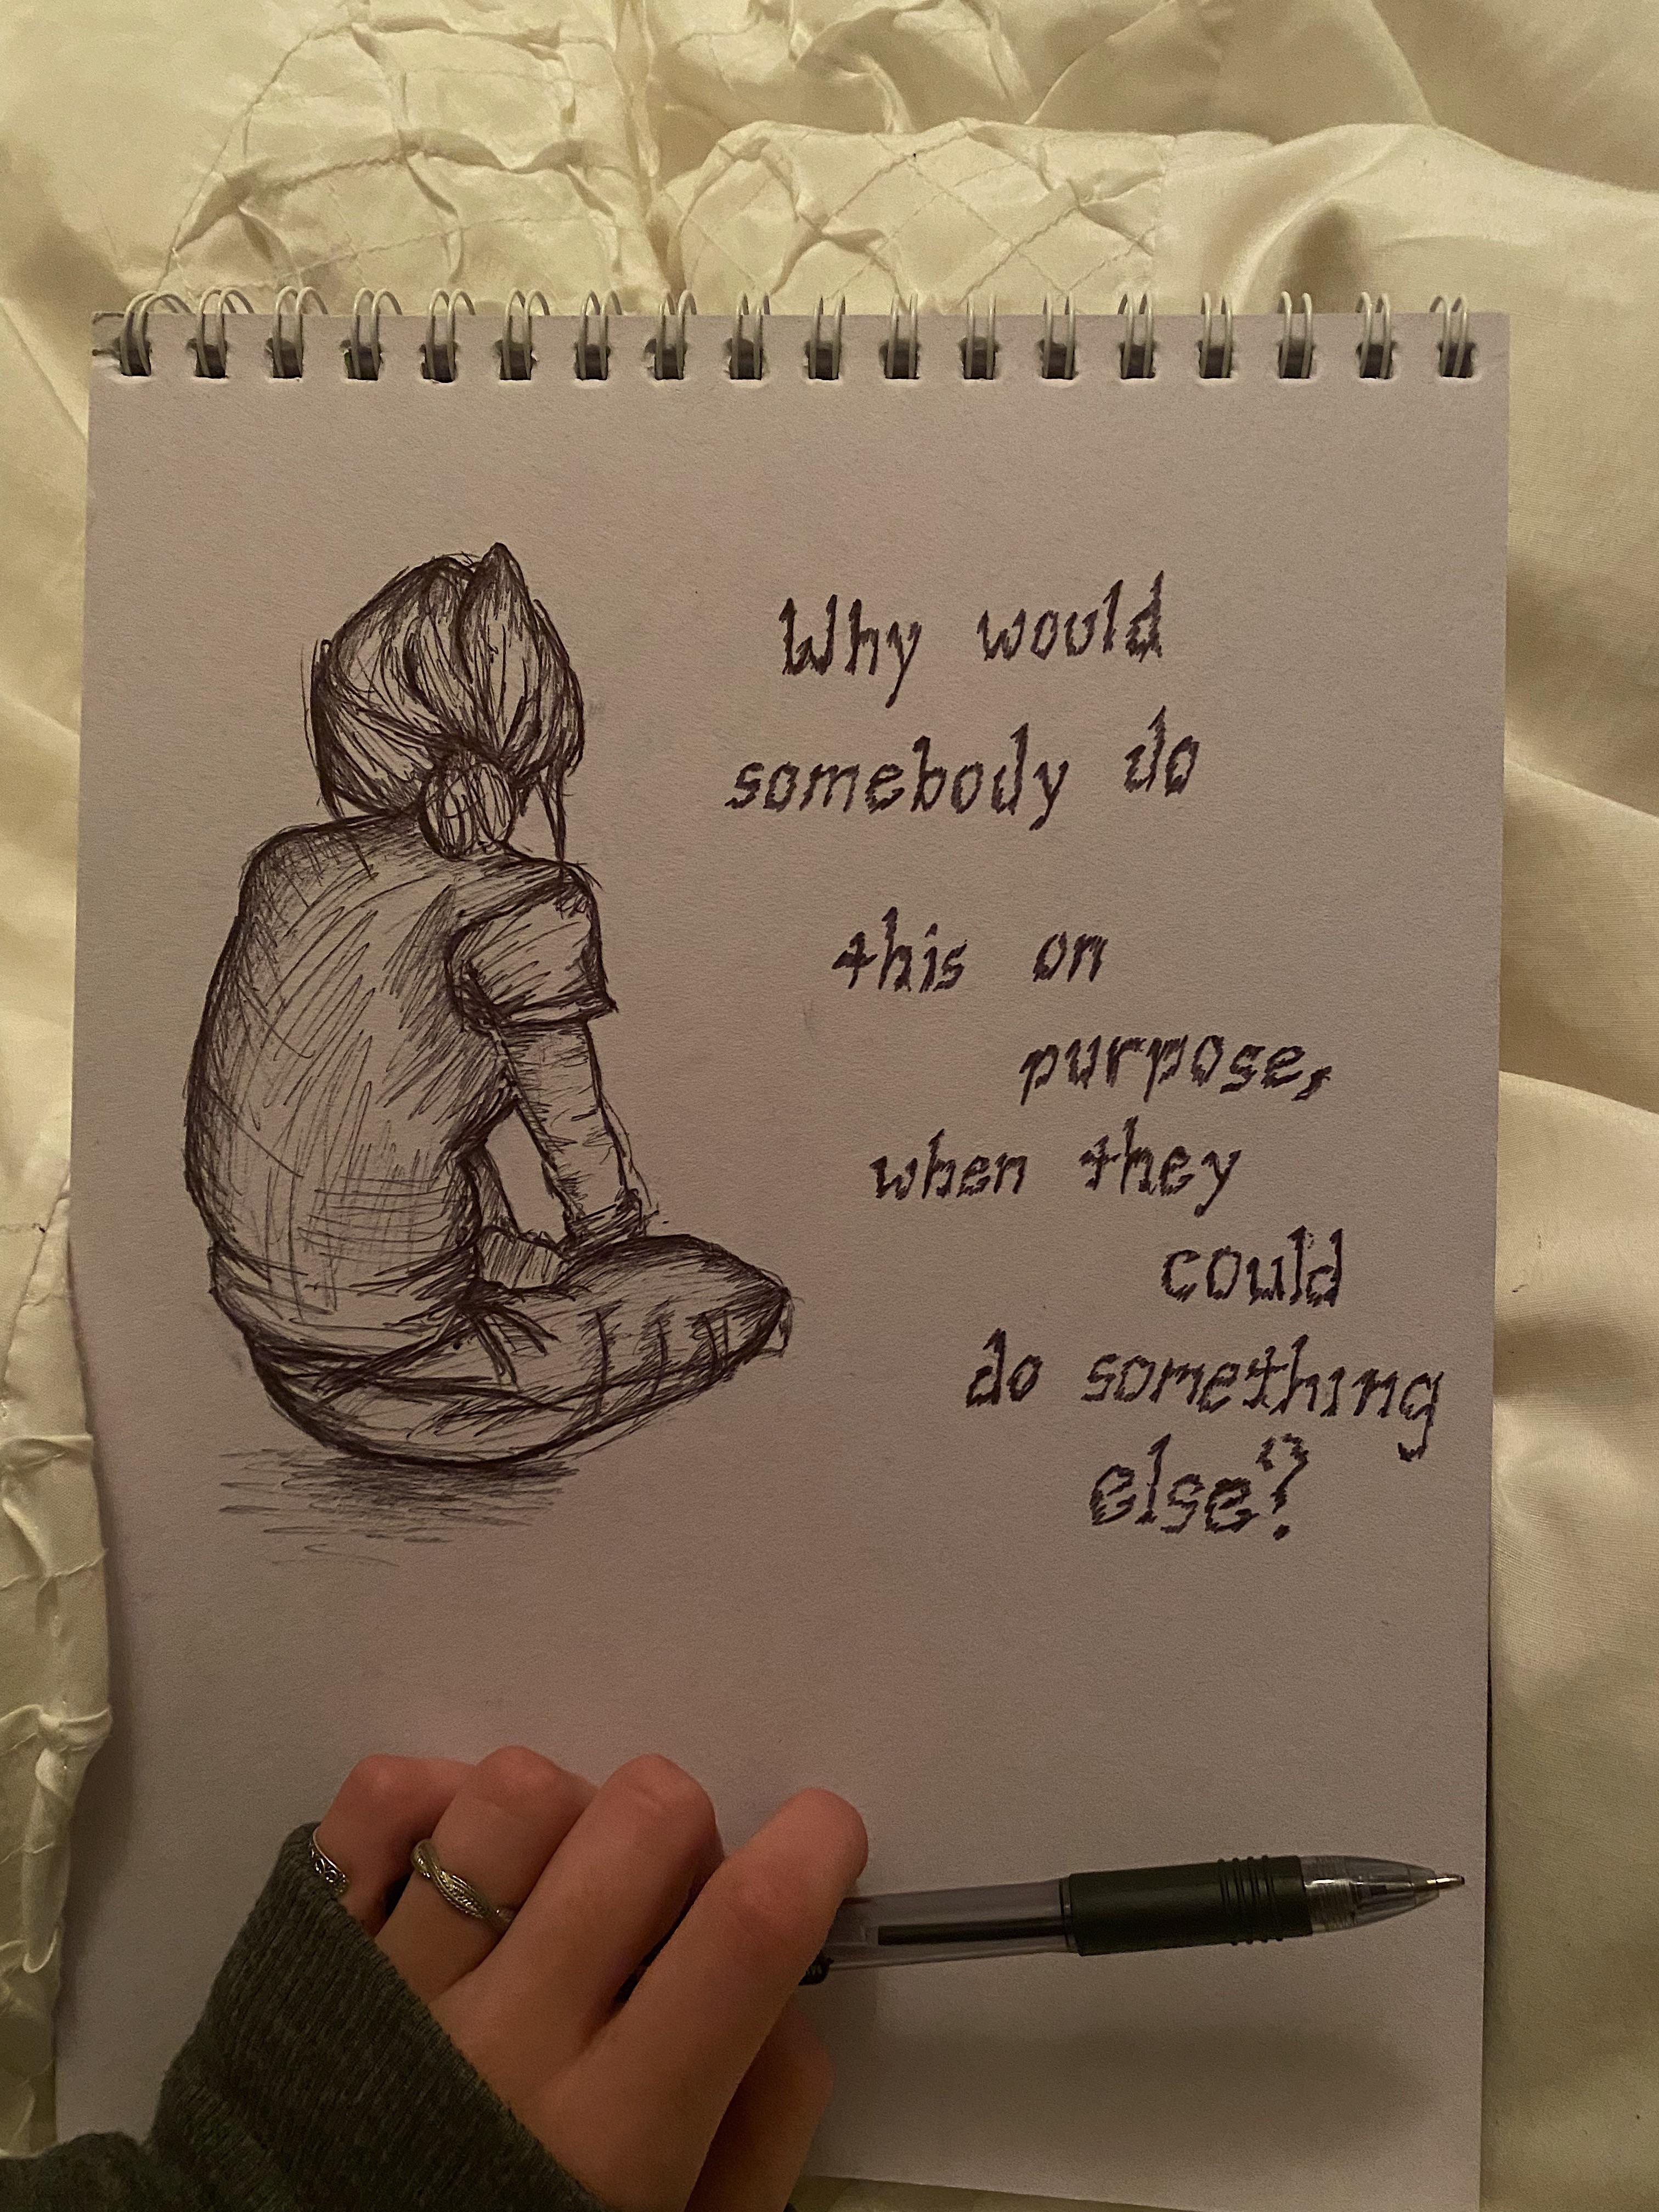 Why would
somebody do
this on
purpose,
when they
could
do something
else?